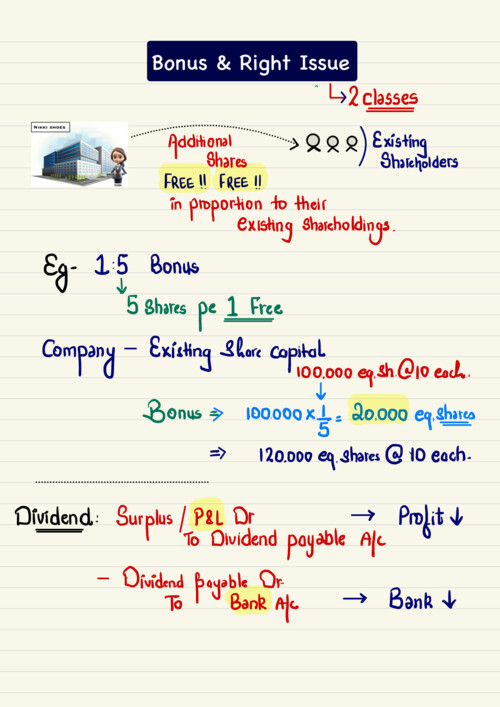 Bonus & Right Issue
2 classes
NIKKI SHOES
Additional
Shares
FREE !! FREE !!
in proportion to their
existing shareholdings.
Existing
Shareholders
Eg- 1:5 Bonus
5 Shares pe 1 Free
Company - Existing Share capital
100.000 eq.sh.@10 each.
Bonus ⇒ 100000 x 1/5 = 20.000 eq. shares
⇒ 120.000 eq. shares @ 10 each.
Dividend: Surplus / P&L Dr → Profit ↓
To Dividend payable A/c
- Dividend payable Dr.
To Bank A/c → Bank ↓